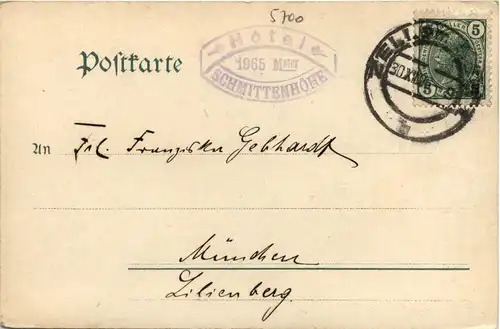 5700
Hôtel
1965 Meter
SCHMITTENHÖHE
Postkarte
ZELL
30
5 5
An Frl. Franziska Gebhardt
München
Lilienberg